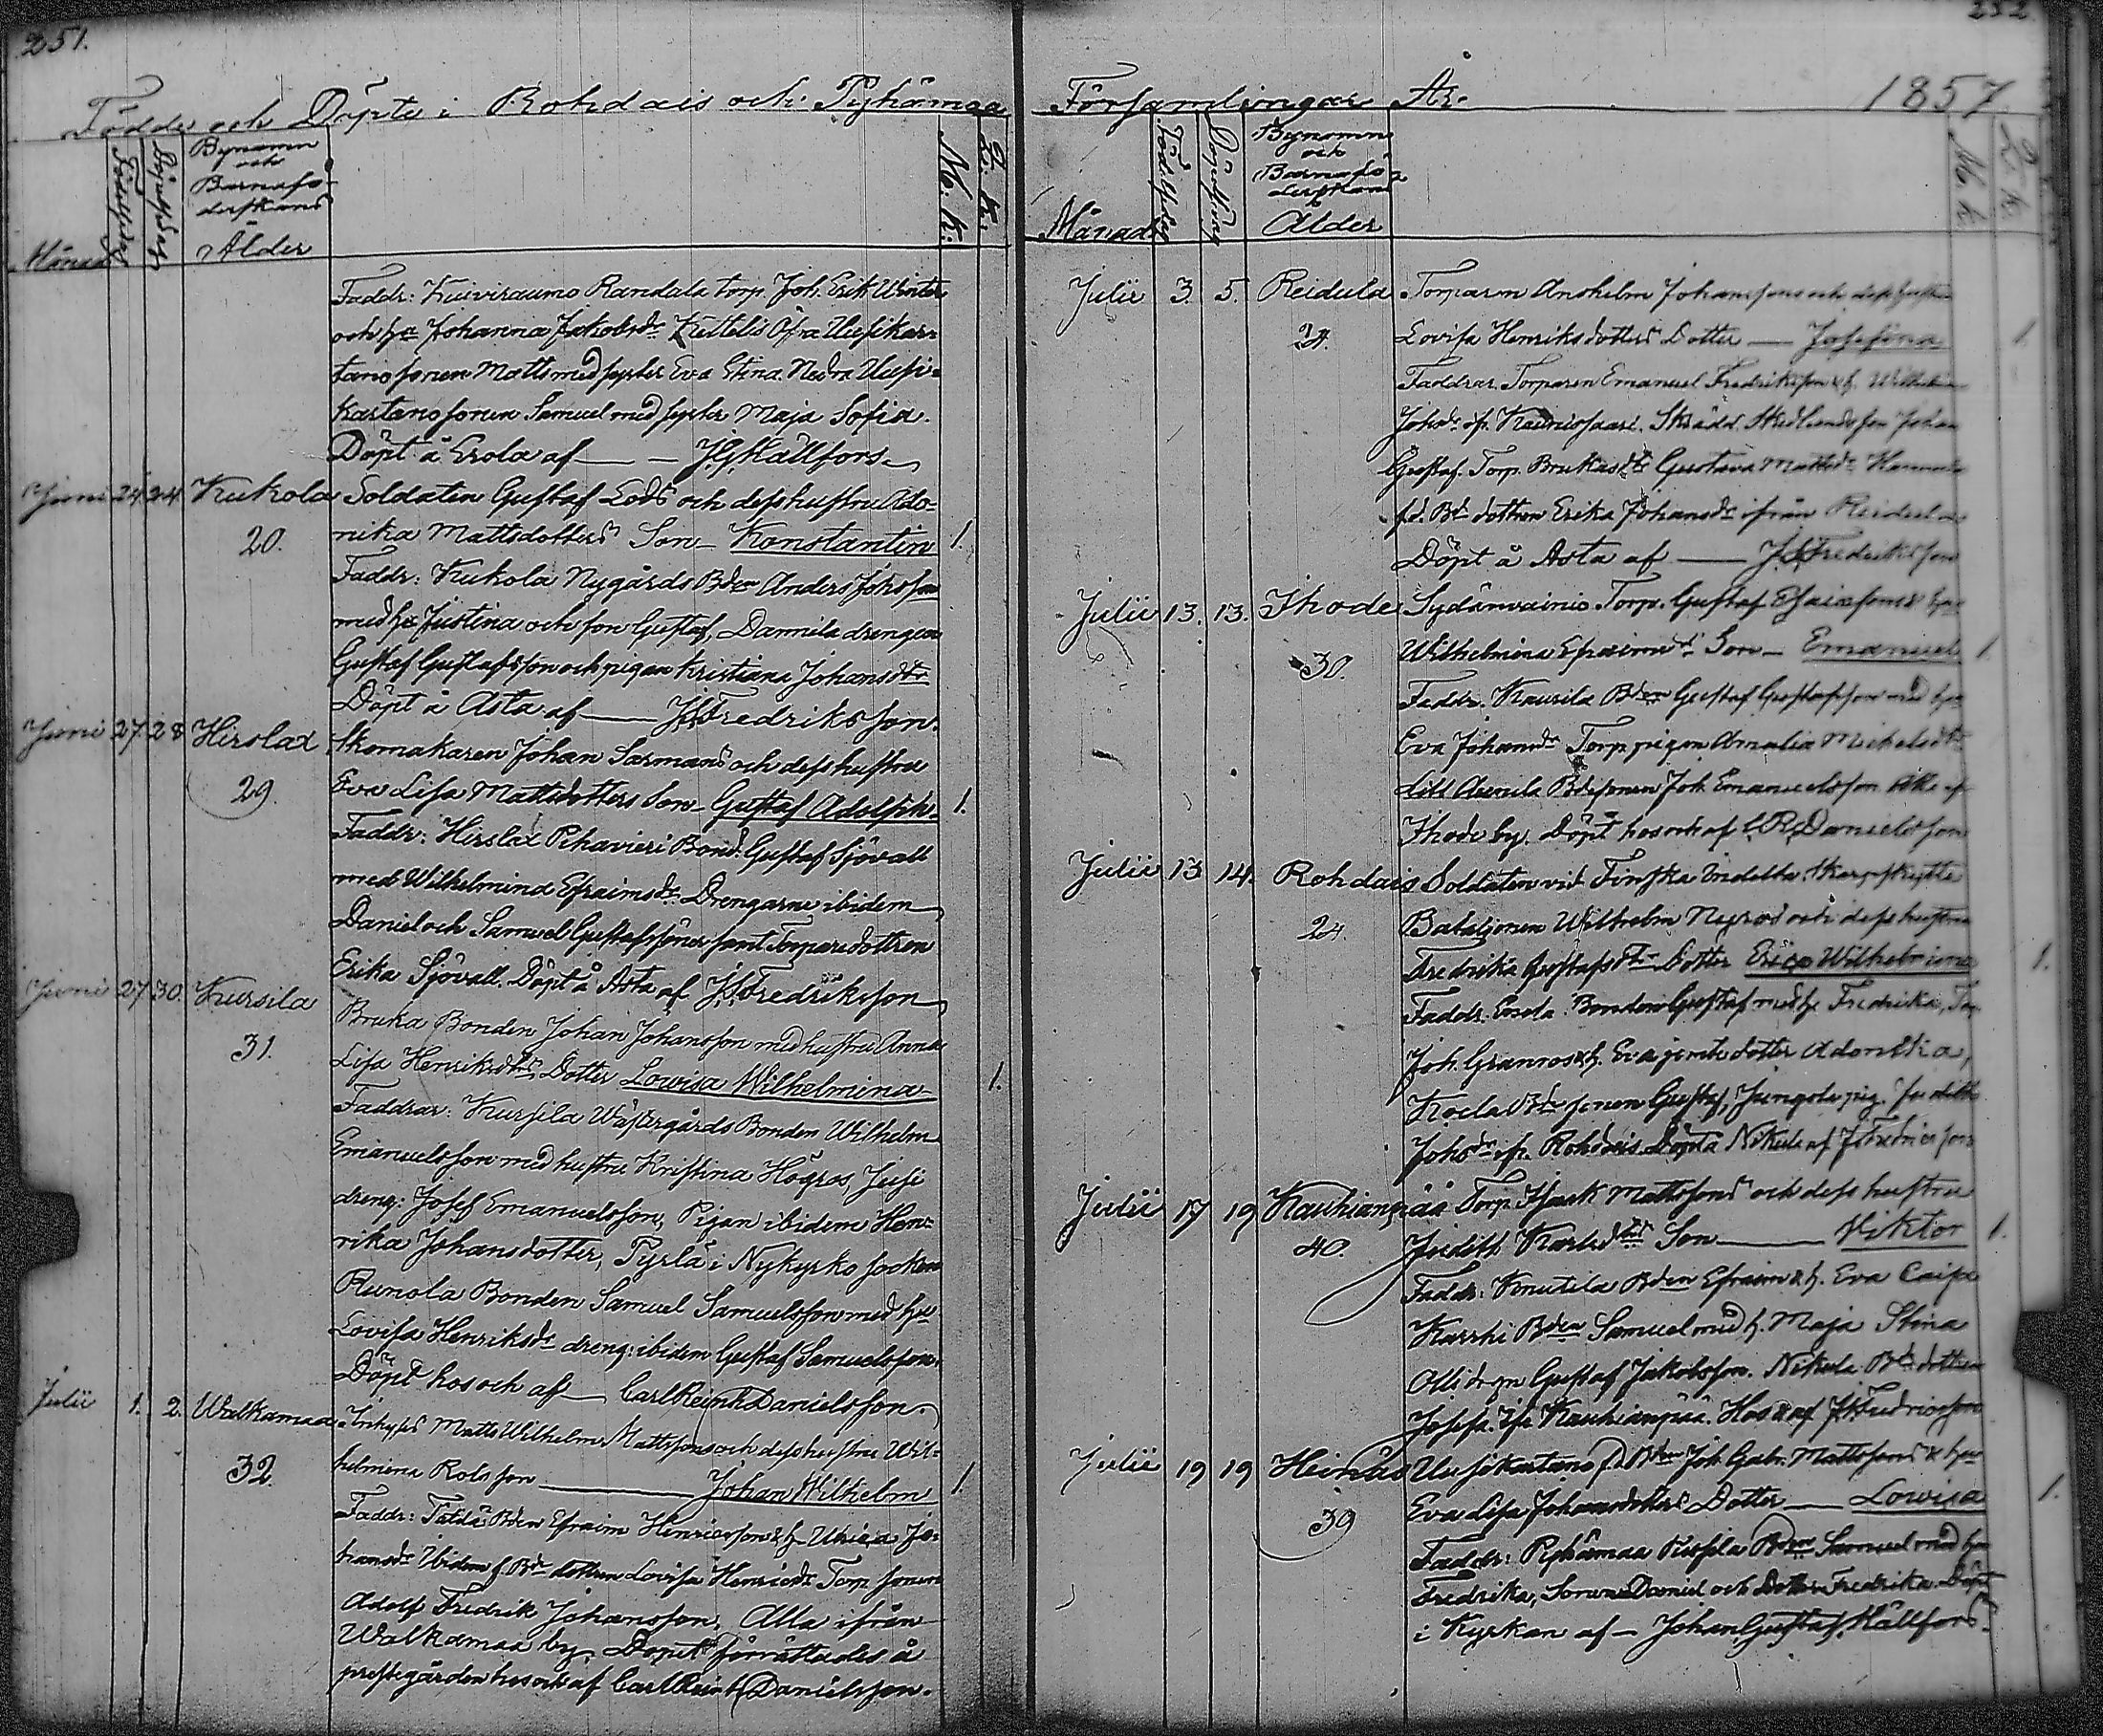 251.
Födde och Döpte i Rohdais och Pyhämaa
Månad
Födelsedag
Döpelsedag
Bynamn
och
Barnafö-
derskans
Ålder
M. k.
Q. k.
Faddr: Kuiviraumo Randala torp. Joh. Erik
och hu Johanna Jakobsdr Kuttelis Öfra Uusikar-
tano sonen Matts med syster Eva Stina. Nedra Uusi-
kartano sonen Samuel med syster Maja Sofia.
Döpt å Erola af — J.G. Hällfors
Juni 24. 24. Kukola Soldaten Gustaf Lods och dess hustru Ado-
20. nika Mattsdotters Son — Konstantin 1.
Faddr: Kukola Nygårds Bden Anders Johsson
med hu Justina och son Gustaf, Dannila drengen
Gustaf Gustafsson och pigan Kristiana Johansdtr
Döpt å Asta af — J.Fredriksson.
Juni 27. 28 Hirslax Skomakaren Johan Sarmans och dess hustru
29. Eva Lisa Mattsdotters Son Gustaf Adolph. 1.
Faddr: Hirslax Pihavieri Bond. Gustaf Sjövall
med Wilhelmina Efraimsdr Drengarne ibidem
Daniel och Samuel Gustafssöner samt Torparedottren
Erika Sjövall. Döpt å Asta af J.Fredriksson
Juni 27. 30. Kursila Bruka Bonden Johan Johansson med hustru Anna
31. Lisa Henriksdtrs Dotter Lowisa Wilhelmina 1.
Faddrar: Kursila Wästergårds Bonden Wilhelm
Emanuelsson med hustru Kristina Högros, Jusi
dreng: Josef Emanuelsson, Pigan ibidem Hen-
rika Johansdotter, Pyrlä i Nykyrko socken
Runola Bonden Samuel Samuelsson med hu
Lovisa Henriksdr dreng: ibidem Gustaf Samuelsson.
Döpt hos och af — Carl Reinh Danielsson.
Julii 1. 2. Walkamaa Inhyses Matts Wilhelm Mattssons och dess hustru Wil-
32. helmina Rolsson — Johan Wilhelm 1.
Faddr: Tatila Bden Efraim Henricsson & h Ulrica Jo-
hansdr Ibidem f. Bde dottren Lovisa Henricsdr Torp sonen
Adolf Fredrik Johansson. Alla ifrån
Walkamaa by. Dopet förrättades å
prestegården hos och af Carl Reinh Danielsson.
252
Församlingar År 1857
Månad
Föd. dag
Döpelsedag
Bynamn
och
Barnafö-
derskans
Ålder
M. k.
Q. k.
Julii 3. 5. Reidula Torparen Anshelm Johanssons och dess hustru
24. Lovisa Henriksdotters Dotter — Josefina 1
Faddrar. Torparen Emanuel Fredriksson & h. Wilhelmina
Johsdr ifr. Skrädd. son Johan
Gustaf. Torp. Gustava Mattsdr
f.d. Bde dottren Erika Johansdr ifrån Reidula
Döpt å Asta af — J.Fredriksson
Julii 13. 13. Ihode Sydänvainio Torp. Gustaf Esaiassons & hu
30. Wilhelmina Efraimsdrs Son — Emanuel 1
Faddr. Kaurila Bden Gustaf Gustafsson med hu
Eva Johansdr Torp pigan Amalia Mickelsdtr
Lill Bdesonen Joh. Emanuelsson Alla af
Ihode by. Döpt hos och af C.R. Danielsson
Julii 13 14. Rohdais Soldaten vid Finska Indelta Skarpskytte
24. Bataljonen Wilhelm och dess hustru
Fredrika Gustafsdtrs Dotter Erica Wilhelmina 1.
Faddr. Erola Bonden Gustaf med h. Fredrika, Torp.
Joh. Granros & h. Eva jemte dotter Adonika,
Koela Bde sonen Gustaf, Jungola pig. Judith
Johsdr ifr. Rohdais Döpt å Nikula af J.Fredricsson
Julii 17 19 Kauhianpää Torp. Isack Mattssons och dess hustru
40. Judith Karlsdtrs Son — Viktor 1.
Faddr: Knutila Bden Efraim & h. Eva Caisa
Karrhi Bden Samuel med h. Maja Stina
Olli drgn Gustaf Jakobsson. Nikula Bde dottren
Josefa. ifr Kauhianpää. Hos & af J.Fredricsson
Julii 19 19 Heinäs Uusikartano f.d. Bden Joh. Gabr. Mattssons & hu
39 Eva Lisa Johansdotters Dotter — Lowisa 1.
Faddr: Pyhämaa Bden Samuel med hu
Fredrika, Sonen Daniel och Dottren Fredrika. Döpt
i Kyrkan af — Johan Gustaf Hällfors.